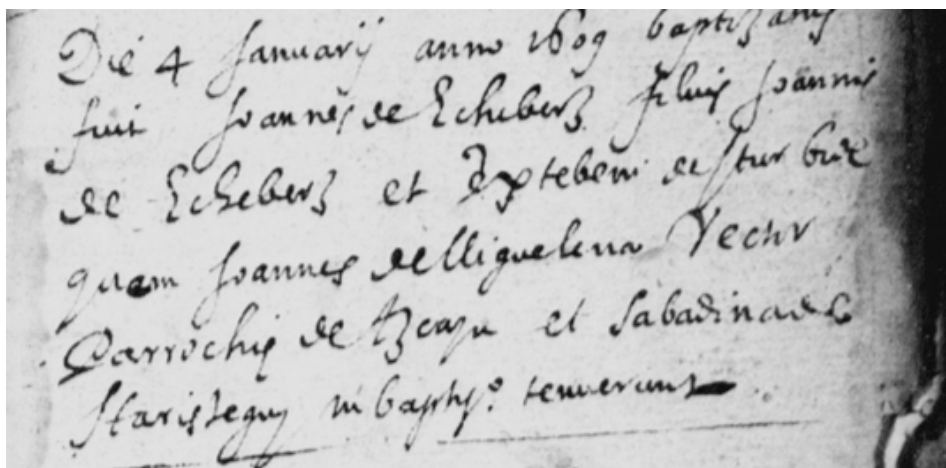 Die 4 Januarij anno 1609 baptizatus
fuit Joannes de Echeberz filius Joannis
de Echeberz et de Iturbide
quem Joannes de Miguelena Rector
Parrochie de Azcayn et Sabadina de
Haristeguy in baptis.o tenuerunt